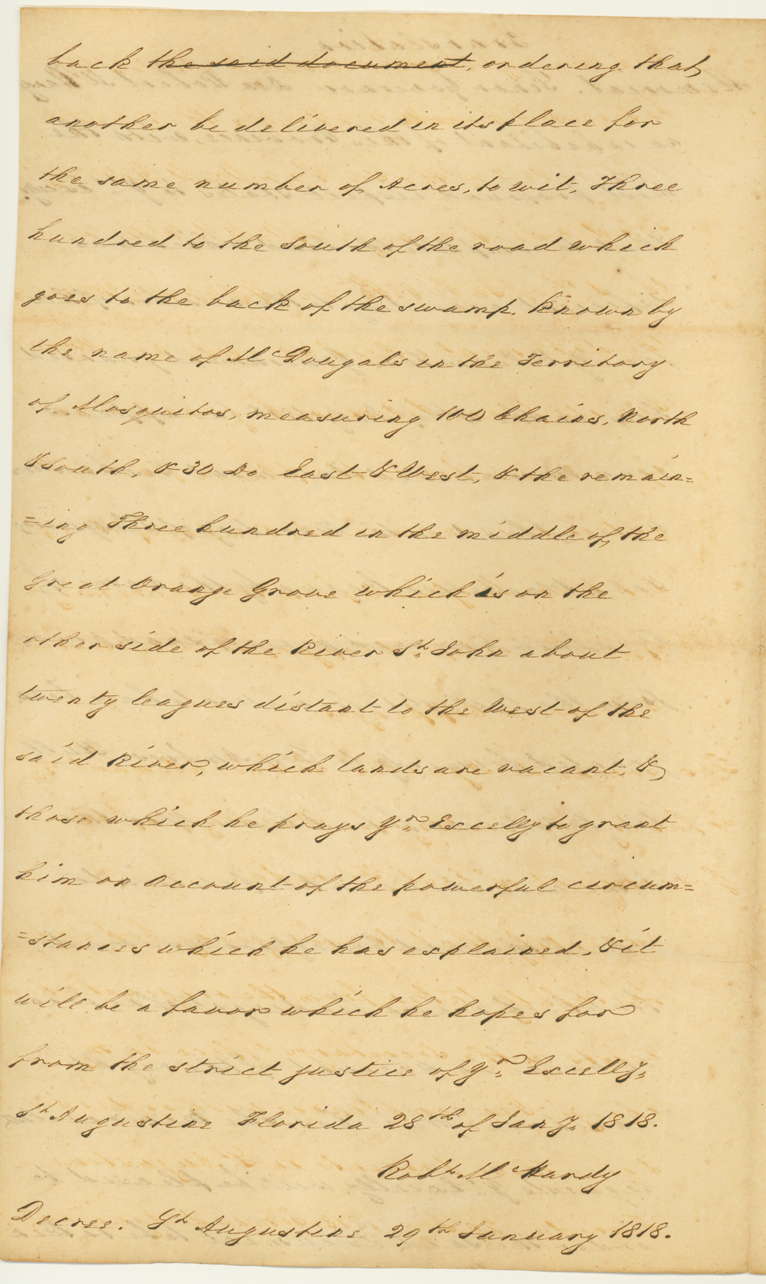 back the said document, ordering that
another be delivered in its place for
the same number of Acres, to wit, Three
hundred to the South of the road which
goes to the back of the swamp Known by
the name of Mc Dougals in the Territory
of Mosquitos, measuring 100 Chains, North
& South, & 30 Do East & West, & the remain=
=ing Three hundred in the middle of the
Great Orange Grove which is on the
other side of the River St. John about
twenty leagues distant to the West of the
said River, which lands are vacant, &
those which he prays Yr. Excelly to grant
him on account of the powerful circum=
=stances which he has explained, & it
will be a favor which he hopes for
from the strict justice of Yr. Excelly.
St Augustine Florida 28th of Jany. 1818.
Robt. Mc Hardy
Decree. St Augustine 29th January 1818.